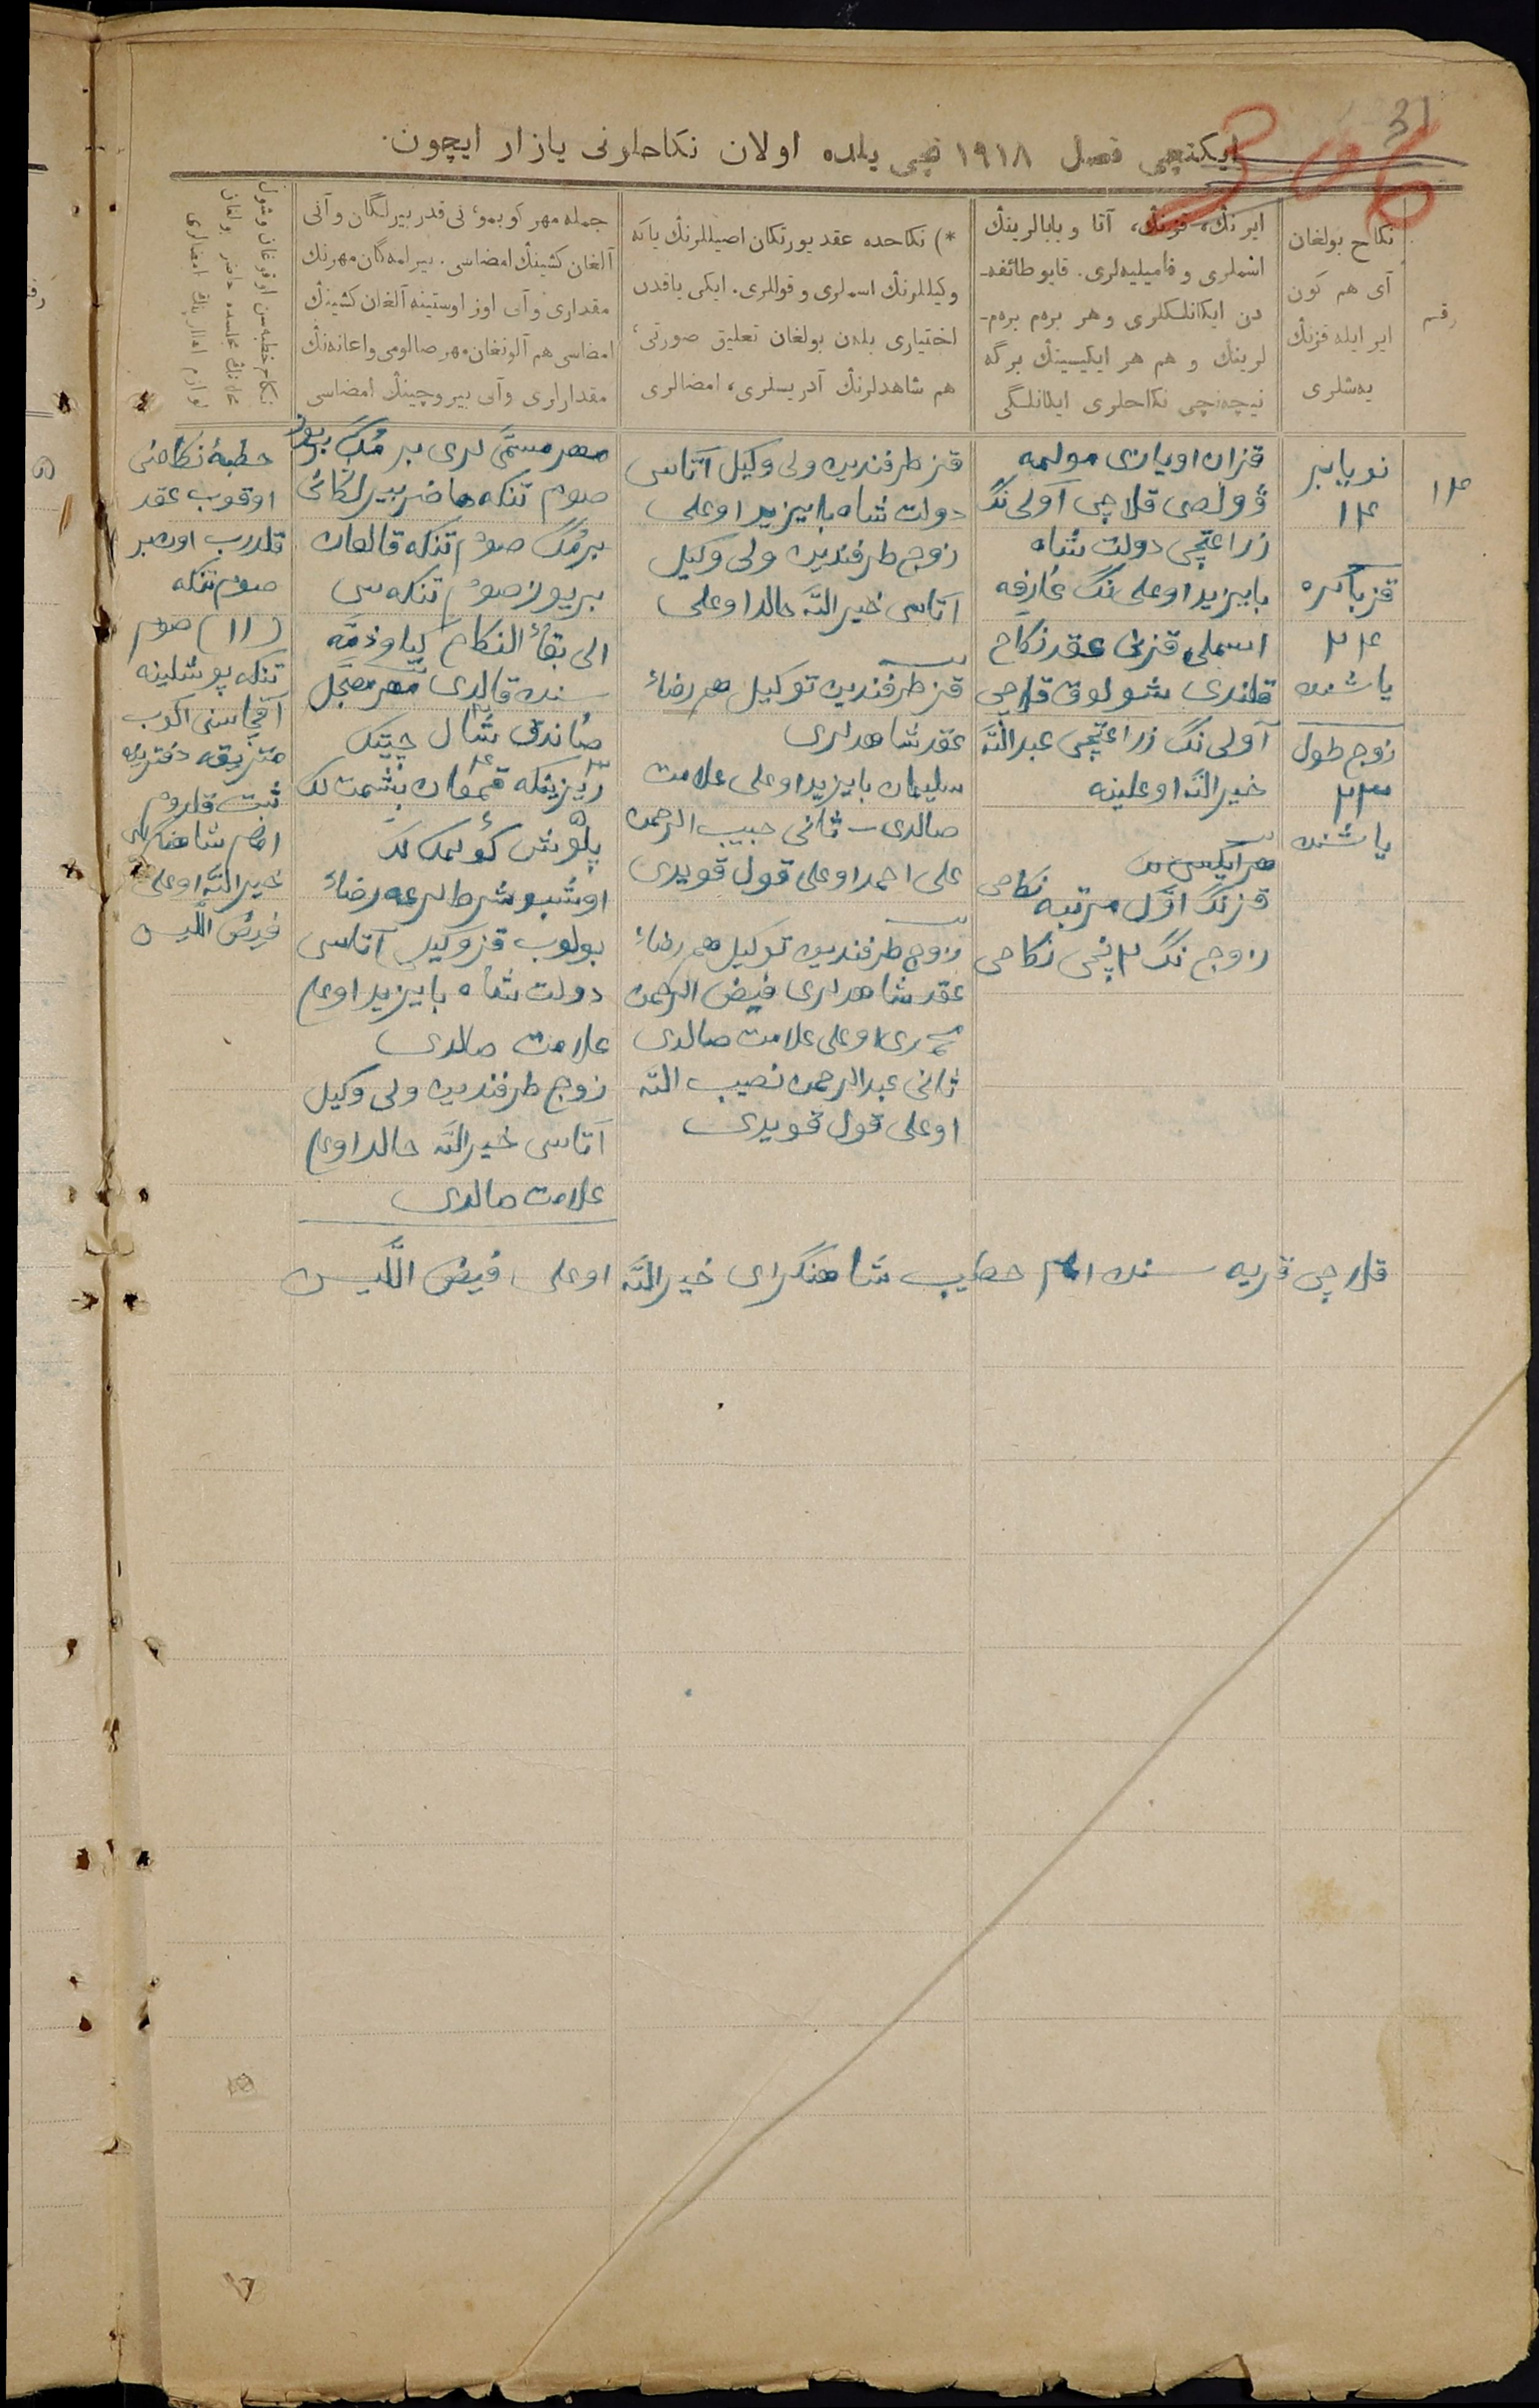 31
306
ایکنچی فصل ۱۹۱۸ نچی یلده اولان نکاحلرنی یازار ایچون.
رقم
نکاح بولغان
آی هم کون
ایر ایله قزنڭ
یه‌شلری
ایرنڭ، قزنڭ، آتا و بابالرینڭ
اسملری و فامیلیه‌لری. قایو طائفه‌ـ
دن ایکانلکلری و هر برم برم‌ـ
لرینڭ و هم هر ایکیسینڭ برگه
نیچه‌نچی نکاحلری ایکانلگی
*) نکاحده عقد یورتکان اصیللرنڭ یانه
وکیللرنڭ اسملری و قوللری. ایکی یاقدن
اختیاری بلدن بولغان تعلیق صورتی،
هم شاهدلرنڭ آدریسلری، امضالری
جمله مهر کوبمو، نی قدر بیرلگان و آنی
آلغان کشینڭ امضاسی. بیرلمه‌گان مهرنڭ
مقداری و آنی اوز اوستینه آلغان کشینڭ
امضاسی هم آلونغان مهر صالومی و اعانه‌نڭ
مقدارلری و آنی بیروچینڭ امضاسی
نکاح خطبه‌سن اوقوغان و شول
مجلسده حاضر بولغان
۱۳
نویابر
۱۴
قز باکره
۲۴
یاشنده
زوج طول
۲۳
یاشنده
قزان اویازی مولمه
وولصی قلاچی آولی نڭ
زراعتچی دولت شاه
بایزید اوغلی نڭ عارفه
اسملی قزنی عقد نکاح
قلندی شولوق قلاچی
آولی نڭ زراعتچی عبدالله
خیرالله اوغلینه
هر ایکیسی نڭ
قزنڭ اوّل مرتبه نکاحی
زوج نڭ ۲ نچی نکاحی
قز طرفندین ولی وکیل آتاسی
دولت شاه بایزید اوغلی
زوج طرفندین ولی وکیل
آتاسی خیرالله خالد اوغلی
قز طرفندین توکیل هم رضاء
عقد شاهدلری
سلیمان بایزید اوغلی علامت
صالدی ثانی حبیب الرحمن
علی احمد اوغلی قول قویدی
زوج طرفندین توکیل هم رضاء
عقد شاهدلری فیض الرحمن
اوغلی علامت صالدی
ثانی عبدالرحمن نصیب الله
اوغلی قول قویدی
مهر مسمّی لری بر مُڭ بریوز
صوم تنکه حاضر بیرلگانی
بر مُڭ صوم تنکه قالغان
بریوز صوم تنکه سی
الی بقاء النکاح کیاو ذمّه
سنده قالدی مهر معجّل
صاندق شال چیتک
اوشبو شرط لرغه رضاء
بولوب قز وکیلی آتاسی
دولت شاه بایزید اوغلی
علامت صالدی
زوج طرفندین ولی وکیل
آتاسی خیرالله خالد اوغلی
علامت صالدی
خطبهٔ نکاحنی
اوقوب عقد
قلدرب اون بر
صوم تنکه
(۱۱) صوم
تنکه پوشلینه
آقچاسنی آلوب
متریقه دفترینه
ثبت قلدوم
امام شاهنگرای
خیرالله اوغلی
فیض اللین
قلاچی قریه سنده امام خطیب شاهنگرای خیرالله اوغلی فیض اللین